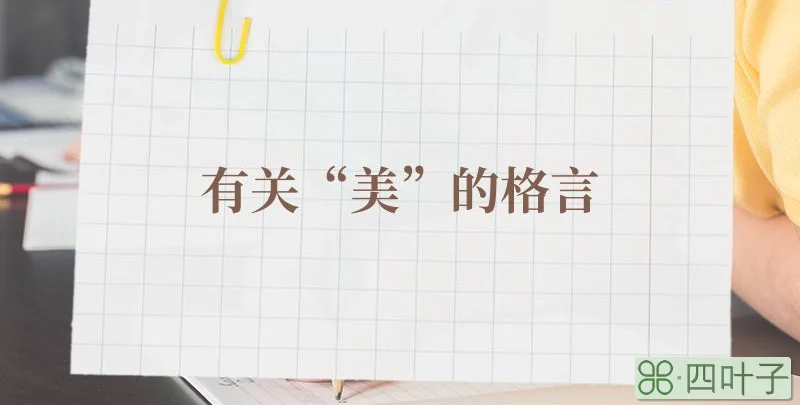 有关“美”的格言
四叶子